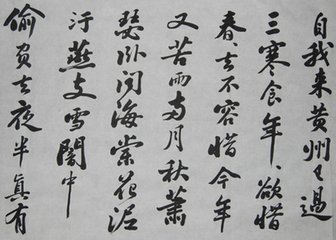 自我来黄州已過
三寒食年々欲惜
春々去不容惜今年
又苦雨兩月秋蕭
瑟卧聞海棠花泥
汙燕支雪闇中
偷負去夜半真有